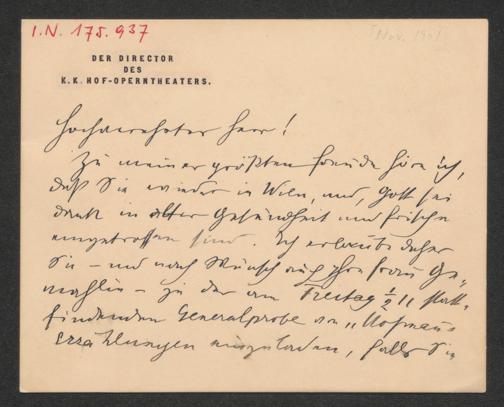 I.N. 175.937
[Nov. 1901]
DER DIRECTOR
DES
K.K. HOF-OPERNTHEATERS.
Hochverehrter Herr!
Zu meiner größten Freude höre ich,
daß Sie wieder in Wien, und, Gott sei
dank in alter Gesundheit und Frische
eingetroffen sind. Ich erlaube daher
Sie – und nach Wunsch auch Ihre Frau Ge-
mahlin – zu der am Freitag ½ 11 statt-
findenden Generalprobe von „Hofmanns
Erzählungen einzuladen, falls Sie